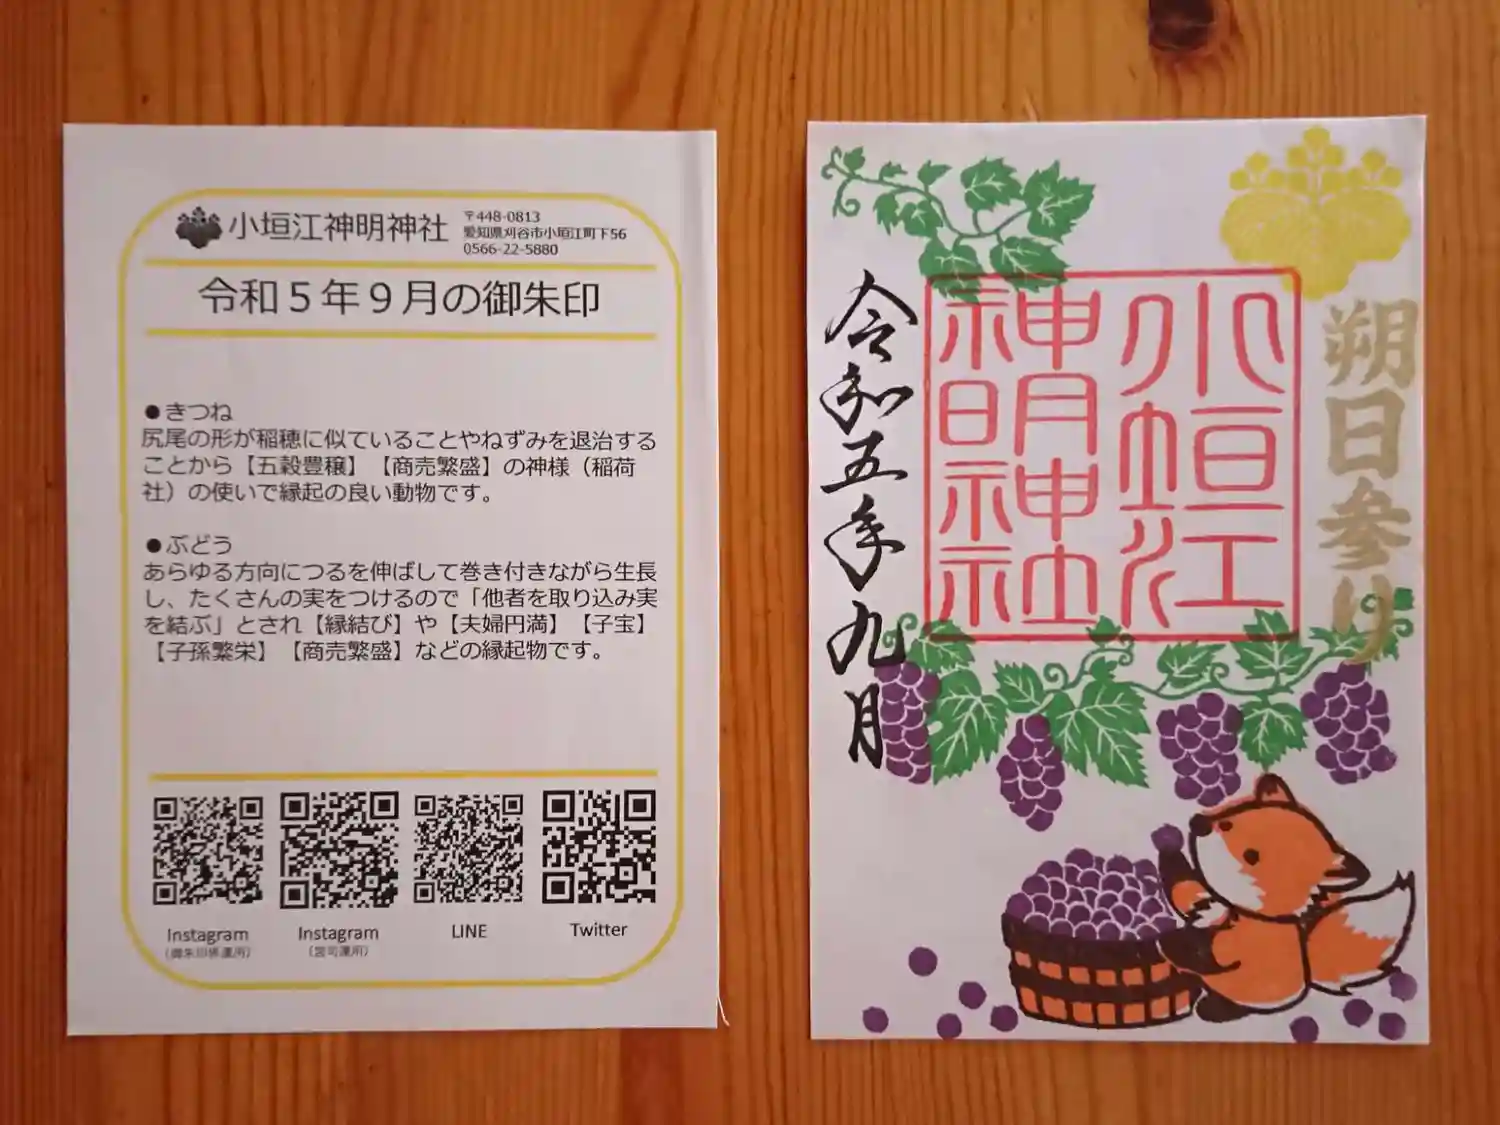 小垣江神明神社
〒448-0813
愛知県刈谷市小垣江町下56
0566-22-5880
令和５年９月の御朱印
●きつね
尻尾の形が稲穂に似ていることやねずみを退治する
ことから【五穀豊穣】【商売繁盛】の神様（稲荷
社）の使いで縁起の良い動物です。
●ぶどう
あらゆる方向につるを伸ばして巻き付きながら生長
し、たくさんの実をつけるので「他者を取り込み実
を結ぶ」とされ【縁結び】や【夫婦円満】【子宝】
【子孫繁栄】【商売繁盛】などの縁起物です。
Instagram
Instagram
LINE
Twitter
（宮司運用）
朔日参り
小垣江
神明神社
令和五年九月